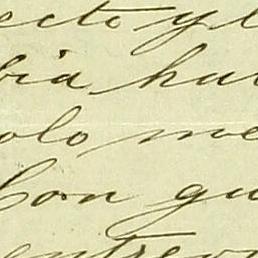 ecto y l
bia hu
olo me
Con gu
entre